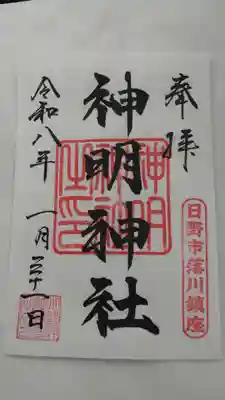 奉拝
日野市落川鎮座
神明神社
神明神社之印
令和八年
一月三十一日